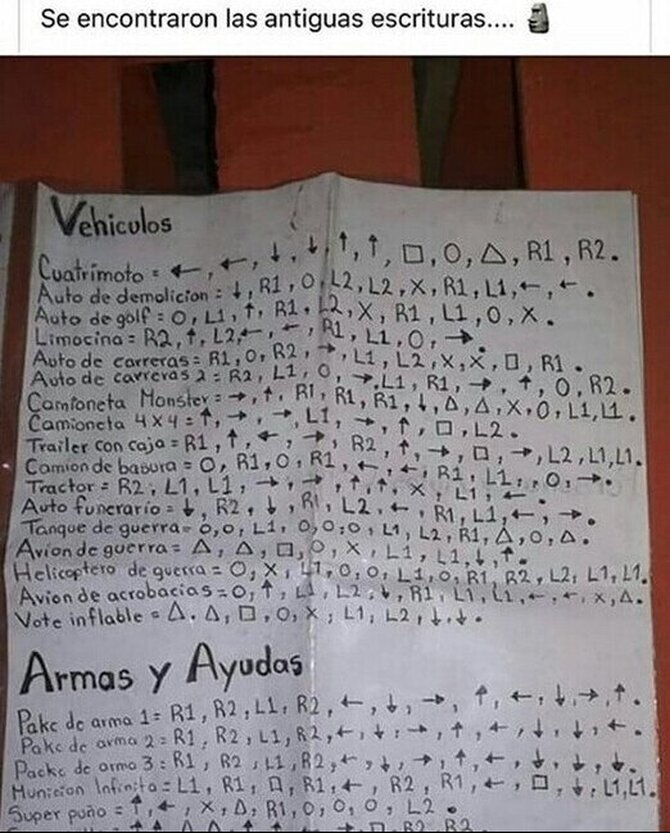 Se encontraron las antiguas escrituras.... 🗿
Vehiculos
Cuatrimoto = ←, ←, ↓, ↓, ↑, ↑, □, O, △, R1, R2.
Auto de demolicion = ↓, R1, O, L2, L2, X, R1, L1, ←, ←.
Auto de golf = O, L1, ↑, R1, L2, X, R1, L1, O, X.
Limocina = R2, ↑, L2, ←, ←, R1, L1, O, →.
Auto de carreras = R1, O, R2, →, L1, L2, X, X, □, R1.
Auto de carreras 2 = R2, L1, O, →, L1, R1, →, ↑, O, R2.
Camioneta Monster = →, ↑, R1, R1, R1, ↓, △, △, X, O, L1, L1.
Camioneta 4x4 = ↑, →, →, L1, →, ↑, □, L2.
Trailer con caja = R1, ↑, ←, →, R2, ↑, →, □, →, L2, L1, L1.
Camion de basura = O, R1, O, R1, ←, ←, R1, L1, O, →.
Tractor = R2, L1, L1, →, →, ↑, ↑, X, L1, ←.
Auto funerario = ↓, R2, ↓, R1, L2, ←, R1, L1, ←, →.
Tanque de guerra = O, O, L1, O, O, O, L1, L2, R1, △, O, △.
Avion de guerra = △, △, □, O, X, L1, L1, ↓, ↑.
Helicoptero de guerra = O, X, L1, O, O, L1, O, R1, R2, L2, L1, L1.
Avion de acrobacias = O, ↑, L1, L2, ↓, R1, L1, L1, ←, ←, X, △.
Vote inflable = △. △, □, O, X, L1, L2, ↓, ↓.
Armas y Ayudas
Pake de arma 1 = R1, R2, L1, R2, ←, ↓, →, ↑, ←, ↓, →, ↑.
Pake de arma 2 = R1, R2, L1, R2, ←, ↓, →, ↑, ←, ↓, ↓, ←.
Packe de arma 3 = R1, R2, L1, R2, ←, ↓, →, ↑, ←, ↓, ↓, ↓.
Municion Infinita = L1, R1, □, R1, ←, R2, R1, ←, □, ↓, L1, L1.
Super puño = ↑, ←, X, △, R1, O, O, O, L2.